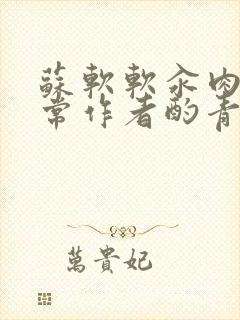 蘇軟軟汆肉
常作者酌青
萬貴妃